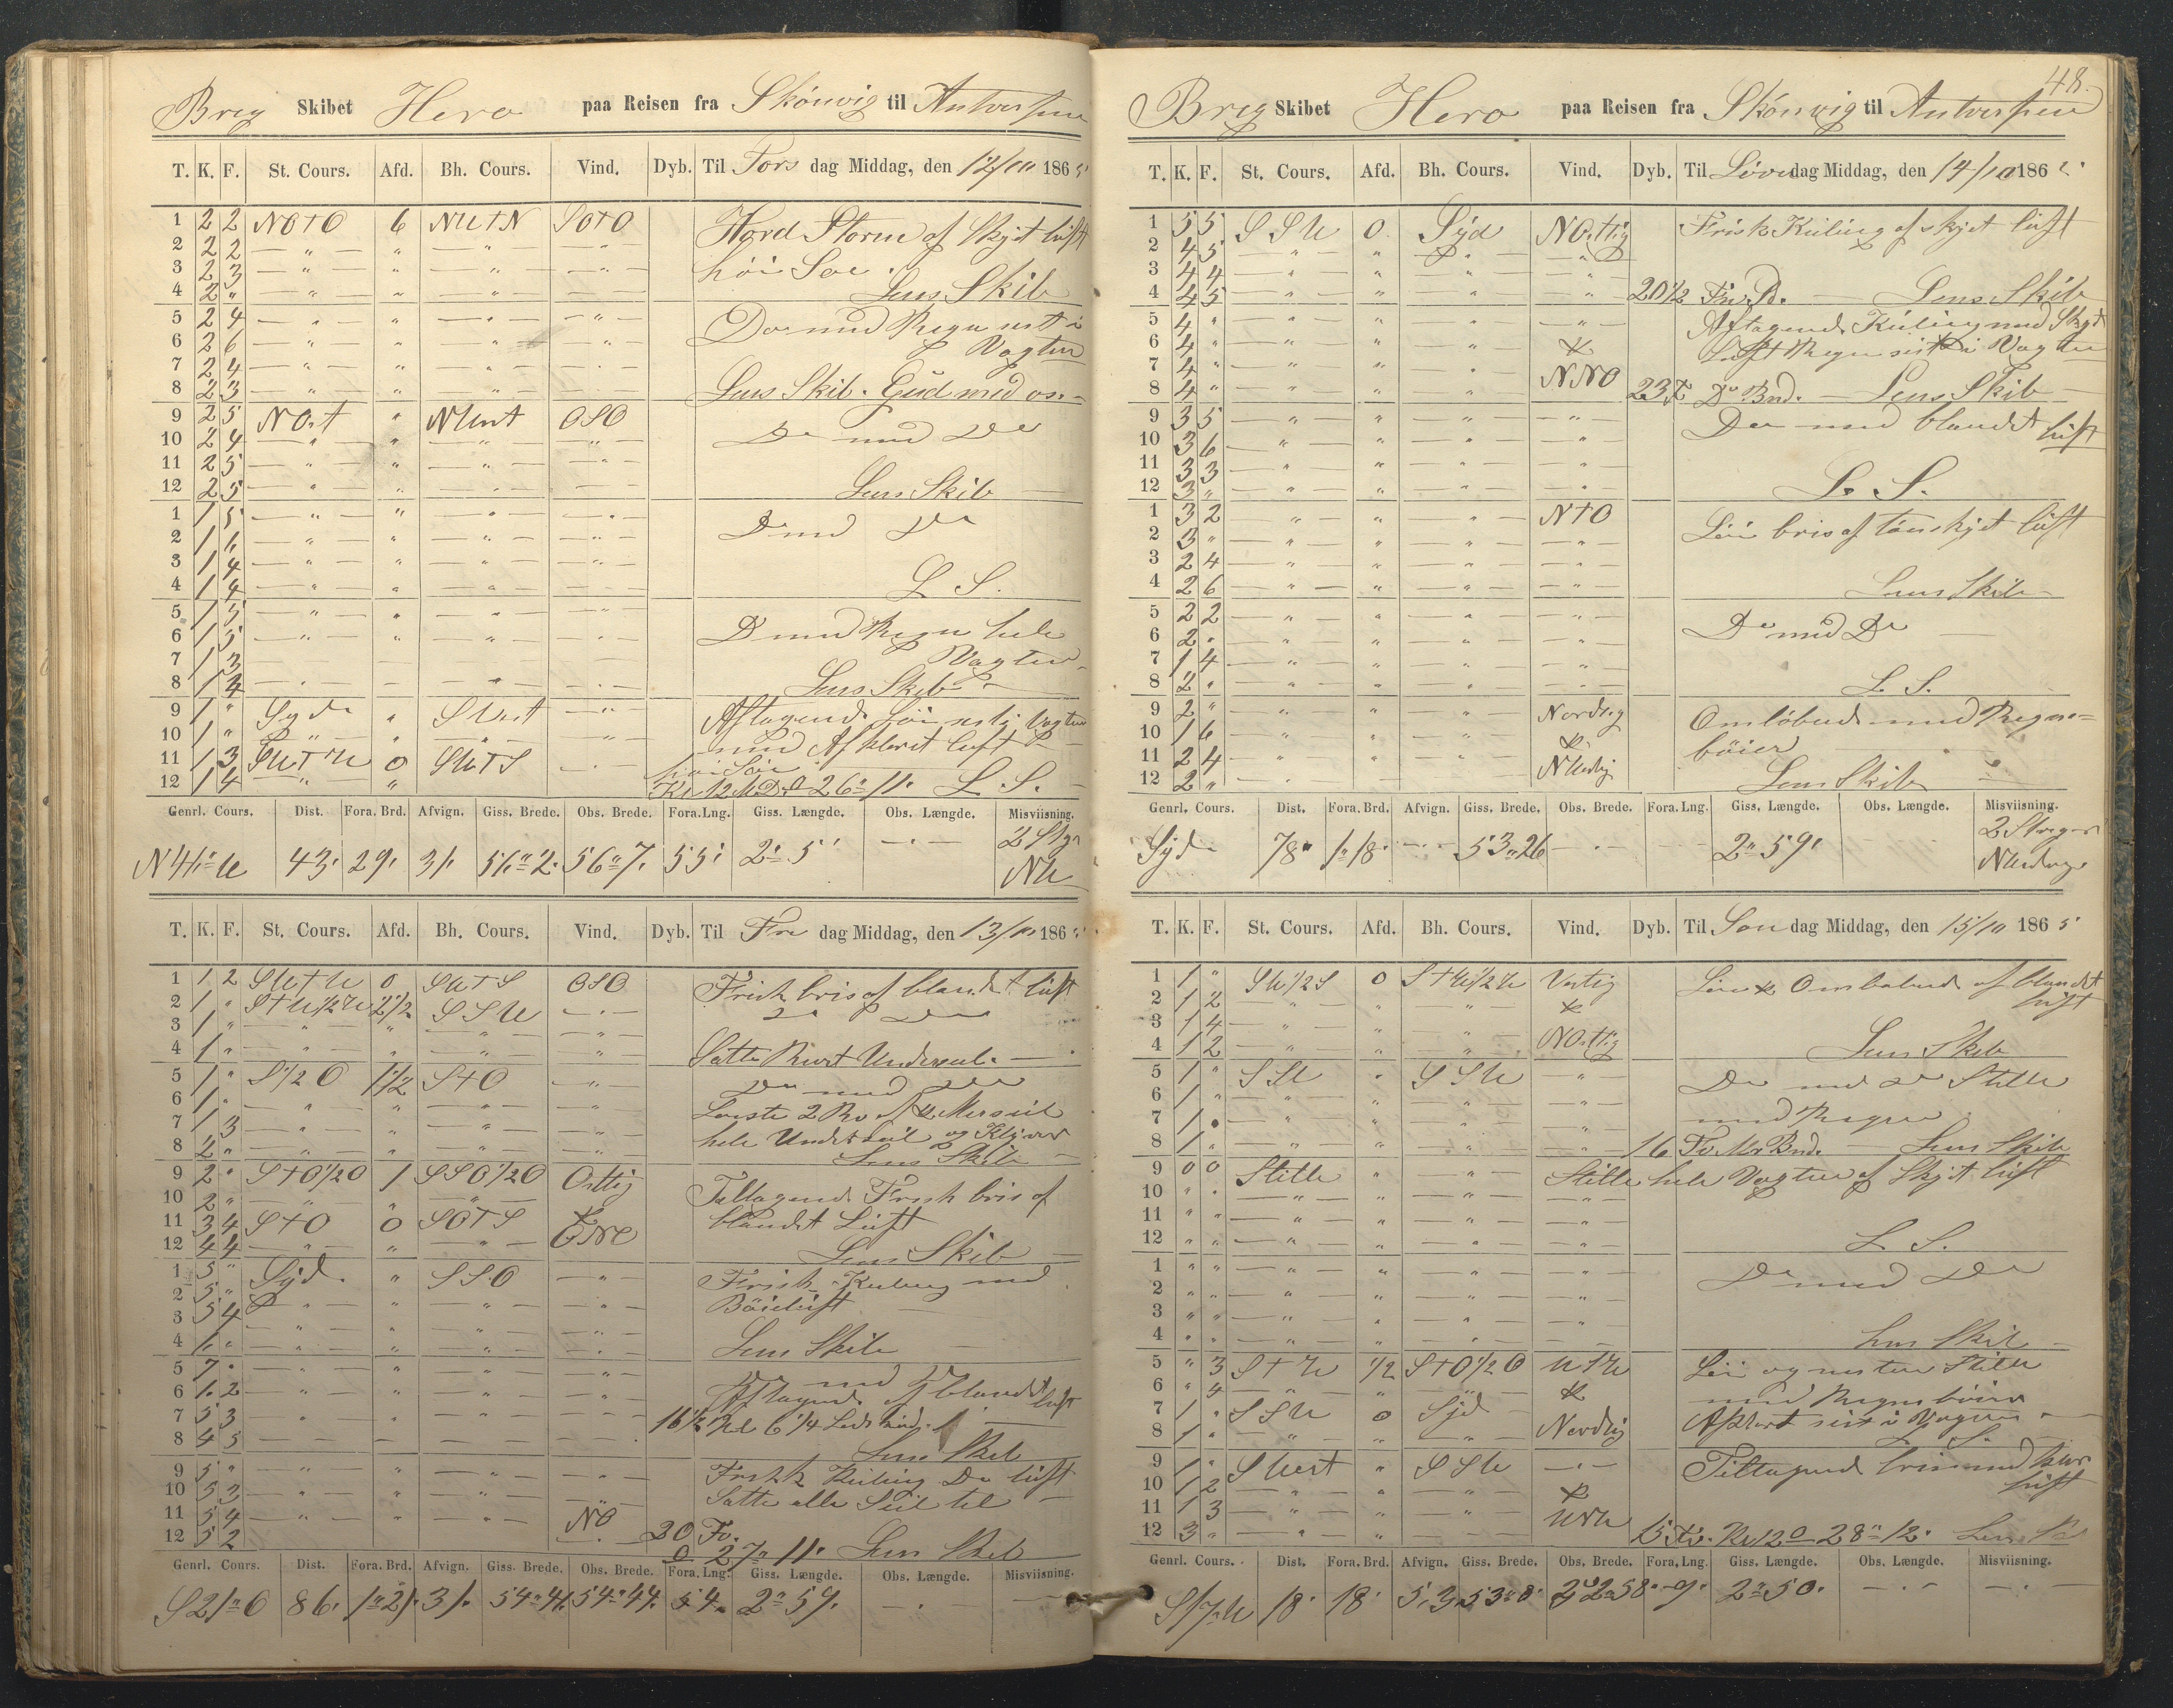 Brig Skibet Hero paa Reisen fra Skönvig til Antverpen
T. K. F. St. Cours. Afd. Bh. Cours. Vind. Dyb. Til Torsdag Middag, den 12/10 1865
1 2 2 NOTO 6 NWTN SOTO Haard Storm af Skyet luft
2 2 2 — " — " — " — — " —
3 2 3 — " — " — " — — " — höi Söe.
4 2 " — " — " — " — — " — Lens Skib
5 2 4 — " — " — " — — " — Do med Regn sist i
6 2 6 — " — " — " — — " — Vagten
7 2 4 — " — " — " — — " —
8 2 3 — " — " — " — — " — Lens Skib. Gud med os.
9 2 5 NOst " NWest OSO Do med Do
10 2 4 — " — " — " — — " —
11 2 5 — " — " — " — — " —
12 2 5 — " — " — " — — " — Lens Skib
1 1 5 — " — " — " — — " — Do med Do
2 1 6 — " — " — " — — " —
3 1 4 — " — " — " — — " —
4 1 4 — " — " — " — — " — L S.
5 1 5 — " — " — " — — " — Do med Regn hele
6 1 5 — " — " — " — — " — Vagten
7 1 3 — — — — —
8 1 4 — " — — — " — — " — Lens Skib
9 1 " Syd " SVest — " — Aftagende Söe sist i Vagten
10 1 " — " — " — " — — " — med Afklaret luft &
11 1 3 SWTW 0 SWTS — " — höi Söe
12 1 4 — " — " Kl 12 MD. 0 26 " 11. L. S.
Genrl. Cours. Dist. Fora. Brd. Afvign. Giss. Brede. Obs. Brede. Fora.Lng. Giss. Længde. Obs. Længde. Misviisning.
43. 29. 31. 56"2. 56"7. 55. 2" 5' — " — 2 Stg NW
T. K. F. St. Cours. Afd. Bh. Cours. Vind. Dyb. Til Fredag Middag, den 13/10 1865
1 1 2 SWTW 0 SWTS OSO Frisk bris af blandet luft
2 1 " STW1/2W 2 1/2 SSW — " — Do Do
3 1 " — " — " — " — — " —
4 1 " — " — " — " — — " — Satte Underseil.
5 1 " S1/2O 1 1/2 STO — " — Do med Do
6 1 " — " — " — " — — " — Loste 2 Rev af Mersseil
7 1 3 — " — " — " — — " — hele Underseil og Klyver
8 2 " — " — " — " — — " — Lens Skib
9 2 " STO1/2O 1 SSO1/2O Ostlig Tiltagende Frisk bris af
10 2 " — " — " — " — &
11 3 4 STO 0 SOTS ONO blandet Luft
12 4 4 — " — " — " — Lens Skib
1 5 " Syd. " SSO — " — Frisk Kuling med
2 5 " — " — " — " — — " — Böieluft
3 5 4 — " — " — " — — " —
4 6 " — " — " — " — — " — Lens Skib
5 7 " — " — " — " — — " — Do med Do
6 6 2 — " — " — " — — " — Aftagende af blandet luft
7 5 3 — " — " — " — 16 1/2 Kl 6 1/4
8 4 5 — — — — Lens Skib
9 5 " — " — " — " — — " — Frisk Kuling Do luft
10 5 3 — " — " — " — — " — Satte alle Seil til
11 5 4 — " — " — " — NO
12 5 2 20 Fv. 0 27" 11. Lens Skib
Genrl. Cours. Dist. Fora. Brd. Afvign. Giss. Brede. Obs. Brede. Fora.Lng. Giss. Længde. Obs. Længde. Misviisning.
S21"O 86. 1"21. 31. 54"41. 54"44. 54. 2" 59. — " — — " —
48.
Brig Skibet Hero paa Reisen fra Skönvig til Antverpen
T. K. F. St. Cours. Afd. Bh. Cours. Vind. Dyb. Til Löverdag Middag, den 14/10 1865
1 5 5 SSW 0 Syd NOstlig Frisk Kuling af skyet luft
2 4 5 — " — " — " — — " —
3 4 4 — " — " — " — — " —
4 4 5 — " — " — " — " 20 1/2 Fv. Lens Skib
5 4 " — " — " — " — — " — Aftagende Kuling med Skyet
6 4 " — " — " — " — & Luft Regn sist i Vagten
7 4 " — " — " — " —
8 4 " — " — " — " NNO 23 Do Bnd. — Lens Skib —
9 3 5 — " — " — " — — " — Do med blandet luft
10 3 6 — " — " — " — — " —
11 3 3 — " — " — " — — " —
12 3 " — " — " — " — — " — L. S.
1 3 2 — " — " — " — NTO Löi bris af tönskyet luft
2 3 " — " — " — " — — " —
3 2 4 — " — " — " — — " —
4 2 6 — " — " — " — — " — Lens Skib
5 2 2 — " — " — " — — " — Do med Do
6 2 " — " — " — " — — " —
7 1 4 — " — " — " — — " —
8 2 " — " — " — " — — " — L S.
9 2 " — " — " — " — Nordlig Omlöbende med Regn=
10 1 6 — " — " — " — & böier
11 2 4 — " — " — " — NWlig
12 2 " — " — Lens Skib
Genrl. Cours. Dist. Fora. Brd. Afvign. Giss. Brede. Obs. Brede. Fora.Lng. Giss. Længde. Obs. Længde. Misviisning.
Syd 78. 1"18. — " — 53"26 — " — — 2" 59. — " — 2 Streger
T. K. F. St. Cours. Afd. Bh. Cours. Vind. Dyb. Til Söndag Middag, den 15/10 1865
1 1 " SW1/2S 0 STW1/2W Vestlig Löi & Omlöbende af blandet
2 1 2 — " — " — " — & luft
3 1 4 — " — " — " —
4 1 2 — " — " — " NOstlig Lens Skib
5 1 " SSW " SSW — " — Do med Do Stille
6 1 " — " — " — " — — " — med Regn
7 1 " — " — " — " — — " —
8 1 " — " — " — " — — " — 16 Fv. Bnd. Lens Skib
9 0 0 Stille " — " — Stille hele Vagten af Skyet luft
10 " " — " — " — " — — " —
11 " " — " — " — " — — " —
12 " " — " — " — " — — " — L S.
1 " " — " — " — " — — " — Do med Do
2 " " — " — " — " — — " —
3 " " — " — " — " — — " —
4 " " — " — " — " — Lens Skib
5 " 3 STW 1/2 STO1/2O WTN Löi og nesten Stille
6 " 4 — " — " — " — & med Regnböier
7 1 " SSW 0 Syd Nordlig Afklart sist i Vagten
8 1 " — " — " — " — L S.
9 1 " SVest " SSW — " — Tiltagende bris med klar
10 1 2 — " — " — " — & luft
11 1 3 — " — " — " —
12 3 " — " — " — " — 15 Fv. Kl 12 0 28" 12. Lens
Genrl. Cours. Dist. Fora. Brd. Afvign. Giss. Brede. Obs. Brede. Fora.Lng. Giss. Længde. Obs. Længde. Misviisning.
S17"W 18. 18. 5. 53"8. 9. 2" 50. — " — — " —